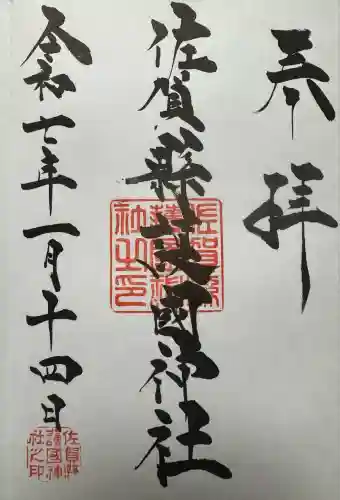 奉拝
佐賀縣護國神社
令和七年一月十四日
佐賀縣
護國神
社之印
佐賀縣
護國神
社之印